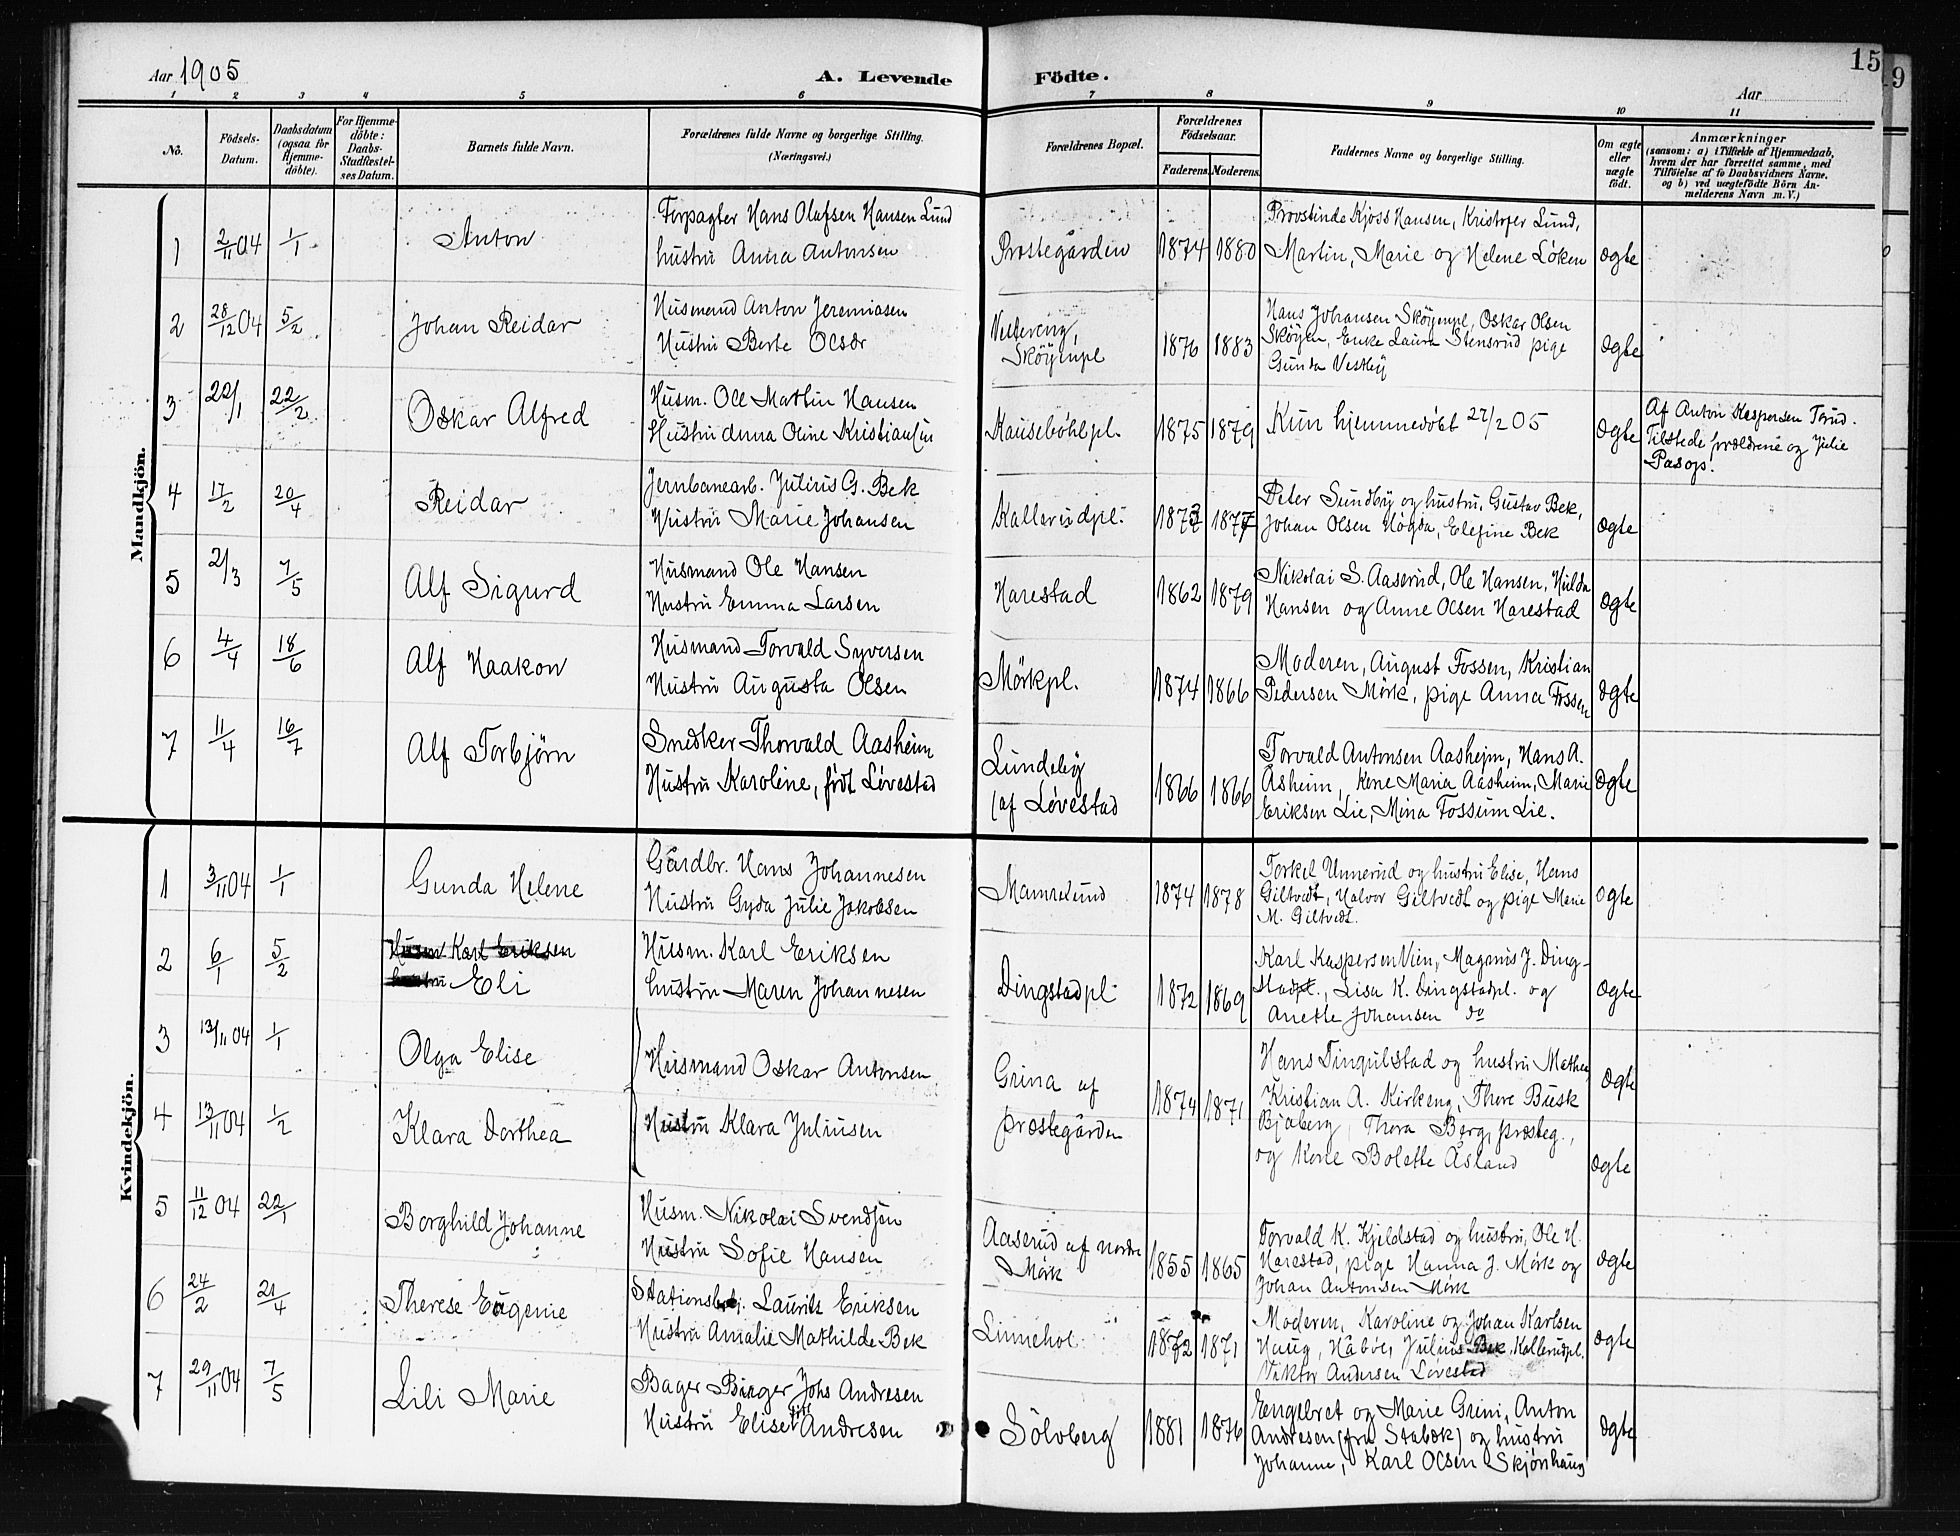 15
9
Aar 1905
A. Levende Födte.
Aar
1 2 3 4 5 6 7 8 9 10 11
No.
Födsels-Datum.
Daabsdatum (ogsaa for Hjemme-döbte).
For Hjemme-döbte: Daabs-Stadfæstel-ses Datum.
Barnets fulde Navn.
Forældrenes fulde Navne og borgerlige Stilling.
(Næringsvei.)
Forældrenes Bopæl.
Forældrenes Födselsaar.
Faderens. Moderens.
Faddernes Navne og borgerlige Stilling.
Om ægte eller uægte födt.
Anmærkninger
(saasom: a) i Tilfælde af Hjemmedaab,
hvem der har forrettet samme, med
Tilföielse af to Daabsvidners Navne,
og b) ved uægtefödte Börn An-
melderens Navn m. V.)
Mandkjön.
1 2/11 04 1/1 Anton
Forpagter Hans Olafsen Hansen Lund
hustru Anna Antonsen
Præstegården 1874 1880
Provstinde Kjoss Hansen, Kristofer Lund,
Martin, Marie og Helene Løken
Ægte
2 28/12 04 5/2 Johan Reidar
Husmand Anton Jeremiasen
Hustru Berte Olsdr
Skøyenpl 1876 1883
Hans Johansen Skøyenpl, Oskar Olsen
Skøyen, Enke Laura Stensrud pige
Gunda Vestby
Ægte
3 22/1 22/2 Oskar Alfred
Husm. Ole Martin Hansen
Hustru Anna Oline Kristiansen
Hausebøhlpl. 1875 1879
Kun hjemmedøbt 22/2 05
Ægte
Af Anton Kaspersen Terud.
Tilstede forældrene og Julie
Pasop.
4 17/2 20/4 Reidar
Jernbanearb. Julius G. Bek
Hustru Marie Johansen
Kallerudpl. 1873 1877
Peter Sundby og hustru, Gustav Bek,
Johan Olsen Høgda, Elefine Bek
Ægte
5 21/3 7/5 Alf Sigurd
Husmand Ole Hansen
Hustru Emma Larsen
Harestad 1862 1879
Nikolai S. Aaserud, Ole Hansen, Hulda
Hansen og Anne Olsen Harestad
Ægte
6 4/4 18/6 Alf Haakon
Husmand Torvald Syversen
Hustru Augusta Olsen
Mörkpl. 1874 1866
Moderen, August Fossen, Kristian
Pedersen Mörk, pige Anna Fossen
Ægte
7 11/4 16/7 Alf Torbjørn
Snedker Thorvald Aasheim
Hustru Karoline, født Løvestad
Lundeby
(af Løvestad 1866 1866
Torvald Antonsen Aasheim, Hans A.
Åsheim, Kone Maria Aasheim, Marie
Eriksen Lie, Mina Fossum Lie.
Ægte
Kvindekjön.
1 3/11 04 1/1 Gunda Helene
Gårdbr. Hans Johannesen
Hustru Gyda Julie Jakobsen
Mamrelund 1874 1878
Torkel Unnerud og hustru Elise, Hans
Giltvedt, Halvor Giltvedt og pige Marie
M. Giltvedt.
Ægte
2 6/1 5/2 Husm Karl Eriksen
hustru Eli
Husm. Karl Eriksen
hustru Maren Johannesen
Dingstadpl 1872 1869
Karl Kaspersen Vien, Magnus J. Ding-
stadpl., Lisa K. Dingstadpl. og
Anette Johansen do
Ægte
3 13/11 04 1/1 Olga Elise
Husmand Oskar Antonsen
Grina af 1874 1871
Hans Tingulstad og hustru Mathea,
Kristian A. Kirkeng, There Busk
Ægte
4 13/11 04 1/2 Klara Dorthea
Hustru Klara Juliusen
præstegården
Bjøberg, Thora Berg, præsteg.,
og Kone Bolette Åsland
Ægte
5 11/12 04 22/1 Borghild Johanne
Husm. Nikolai Svendsen
Hustru Sofie Hansen
Aaserud af nordre
Mörk 1855 1865
Torvald K. Kjeldstad og hustru, Ole H.
Harestad, pige Hanna J. Mörk og
Johan Antonsen Mörk
Ægte
6 24/2 21/4 Therese Eugenie
Stationsbetj. Laurits Eriksen
Hustru Amalie Mathilde Bek
Linnehol 1872 1871
Moderen, Karoline og Johan Karlsen
Haug, Håbøl, Julius Bek Kallerudpl.
Viktor Andersen Løvestad
Ægte
7 29/11 04 7/5 Lili Marie
Bager Birger Johs Andresen
Hustru Elise Andresen
Sölvberg 1881 1876
Engebret og Marie Grini, Anton
Andresen (fra Stabæk) og hustru
Johanne, Karl Olsen Skjønhaug
Ægte